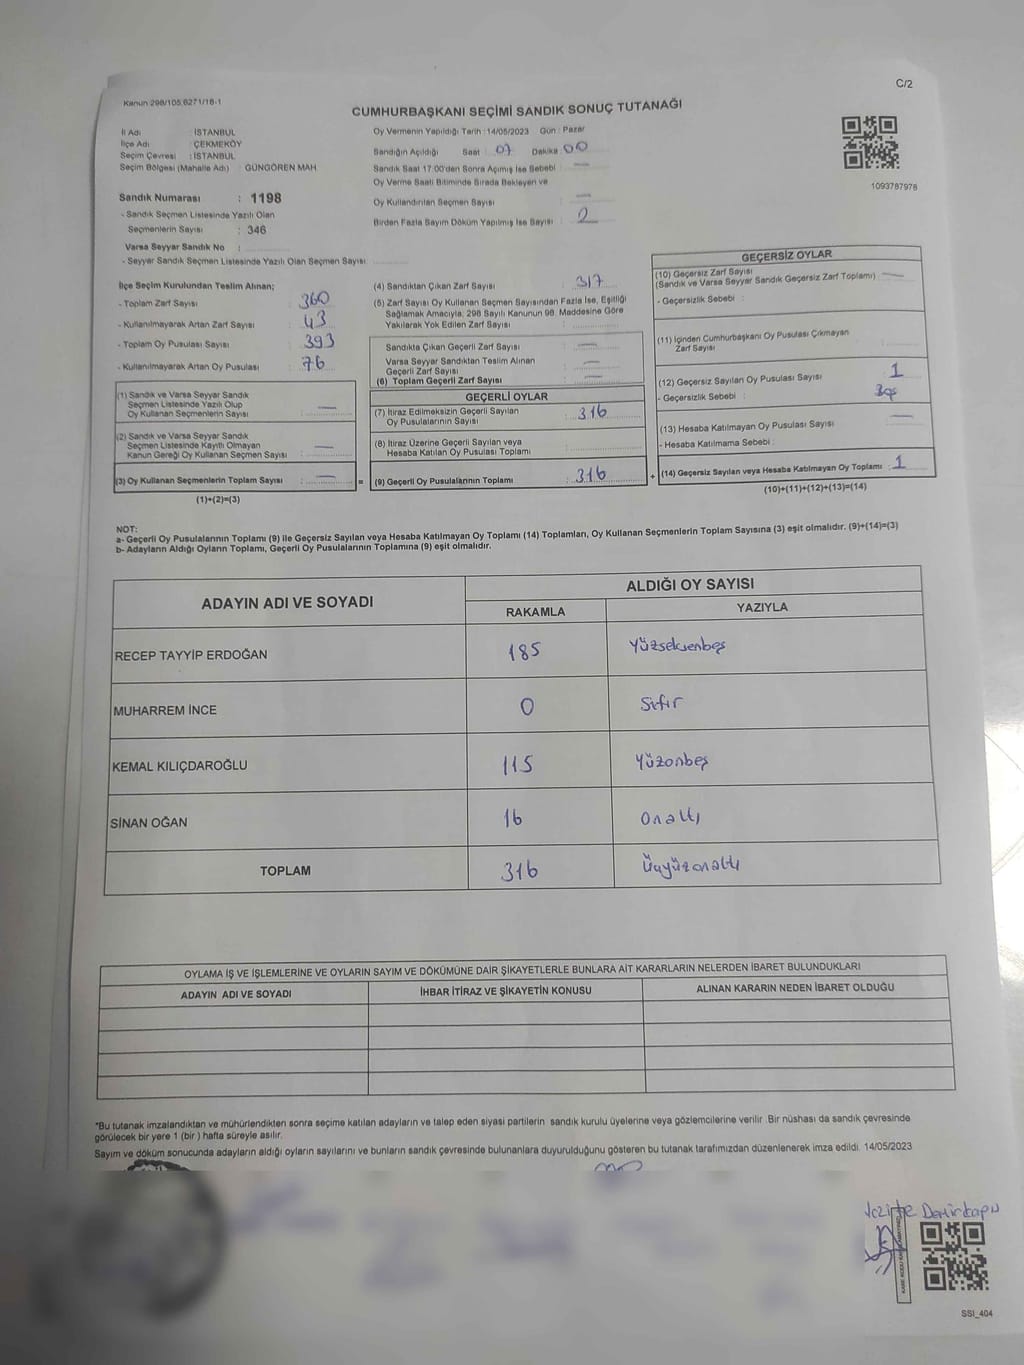 C/2
Kanun 298/105,6271/18-1
CUMHURBAŞKANI SEÇİMİ SANDIK SONUÇ TUTANAĞI
İl Adı : İSTANBUL
İlçe Adı : ÇEKMEKÖY
Seçim Çevresi : İSTANBUL
Seçim Bölgesi (Mahalle Adı) : GÜNGÖREN MAH
Oy Vermenin Yapıldığı Tarih : 14/05/2023 Gün : Pazar
Sandığın Açıldığı Saat : 07 Dakika : 00
Sandık Saat 17:00'den Sonra Açımış İse Sebebi : —
Oy Verme Saati Bitiminde Sırada Bekleyen ve
Oy Kullandırılan Seçmen Sayısı : —
Birden Fazla Sayım Döküm Yapılmış İse Sayısı : 2
1093787978
Sandık Numarası : 1198
- Sandık Seçmen Listesinde Yazılı Olan
Seçmenlerin Sayısı : 346
Varsa Seyyar Sandık No :
- Seyyar Sandık Seçmen Listesinde Yazılı Olan Seçmen Sayısı :
İlçe Seçim Kurulundan Teslim Alınan;
- Toplam Zarf Sayısı : 360
- Kullanılmayarak Artan Zarf Sayısı : 43
- Toplam Oy Pusulası Sayısı : 393
- Kullanılmayarak Artan Oy Pusulası : 76
(1) Sandık ve Varsa Seyyar Sandık
Seçmen Listesinde Yazılı Olup
Oy Kullanan Seçmenlerin Sayısı : —
(2) Sandık ve Varsa Seyyar Sandık
Seçmen Listesinde Kayıtlı Olmayan
Kanun Gereği Oy Kullanan Seçmen Sayısı : —
(3) Oy Kullanan Seçmenlerin Toplam Sayısı : —
(1)+(2)=(3)
(4) Sandıktan Çıkan Zarf Sayısı : 317
(5) Zarf Sayısı Oy Kullanan Seçmen Sayısından Fazla İse, Eşitliği
Sağlamak Amacıyla, 298 Sayılı Kanunun 98. Maddesine Göre
Yakılarak Yok Edilen Zarf Sayısı :
Sandıkta Çıkan Geçerli Zarf Sayısı : —
Varsa Seyyar Sandıktan Teslim Alınan
Geçerli Zarf Sayısı : —
(6) Toplam Geçerli Zarf Sayısı : —
GEÇERLİ OYLAR
(7) İtiraz Edilmeksizin Geçerli Sayılan
Oy Pusulalarının Sayısı : 316
(8) İtiraz Üzerine Geçerli Sayılan veya
Hesaba Katılan Oy Pusulası Toplamı :
= (9) Geçerli Oy Pusulalarının Toplamı : 316
GEÇERSİZ OYLAR
(10) Geçersiz Zarf Sayısı
(Sandık ve Varsa Seyyar Sandık Geçersiz Zarf Toplamı) : —
- Geçersizlik Sebebi :
(11) İçinden Cumhurbaşkanı Oy Pusulası Çıkmayan
Zarf Sayısı :
(12) Geçersiz Sayılan Oy Pusulası Sayısı : 1
- Geçersizlik Sebebi :
(13) Hesaba Katılmayan Oy Pusulası Sayısı : —
- Hesaba Katılmama Sebebi :
+ (14) Geçersiz Sayılan veya Hesaba Katılmayan Oy Toplamı : 1
(10)+(11)+(12)+(13)=(14)
NOT:
a- Geçerli Oy Pusulalarının Toplamı (9) ile Geçersiz Sayılan veya Hesaba Katılmayan Oy Toplamı (14) Toplamları, Oy Kullanan Seçmenlerin Toplam Sayısına (3) eşit olmalıdır. (9)+(14)=(3)
b- Adayların Aldığı Oyların Toplamı, Geçerli Oy Pusulalarının Toplamına (9) eşit olmalıdır.
ADAYIN ADI VE SOYADI
ALDIĞI OY SAYISI
RAKAMLA YAZIYLA
RECEP TAYYİP ERDOĞAN 185 Yüzseksenbeş
MUHARREM İNCE 0 Sıfır
KEMAL KILIÇDAROĞLU 115 Yüzonbeş
SİNAN OĞAN 16 Onaltı
TOPLAM 316 Üçyüzonaltı
OYLAMA İŞ VE İŞLEMLERİNE VE OYLARIN SAYIM VE DÖKÜMÜNE DAİR ŞİKAYETLERLE BUNLARA AİT KARARLARIN NELERDEN İBARET BULUNDUKLARI
ADAYIN ADI VE SOYADI İHBAR İTİRAZ VE ŞİKAYETİN KONUSU ALINAN KARARIN NEDEN İBARET OLDUĞU
*Bu tutanak imzalandıktan ve mühürlendikten sonra seçime katılan adayların ve talep eden siyasi partilerin sandık kurulu üyelerine veya gözlemcilerine verilir. Bir nüshası da sandık çevresinde
görülecek bir yere 1 (bir) hafta süreyle asılır.
Sayım ve döküm sonucunda adayların aldığı oyların sayılarını ve bunların sandık çevresinde bulunanlara duyurulduğunu gösteren bu tutanak tarafımızdan düzenlenerek imza edildi. 14/05/2023
Demirkapu
SSI_404